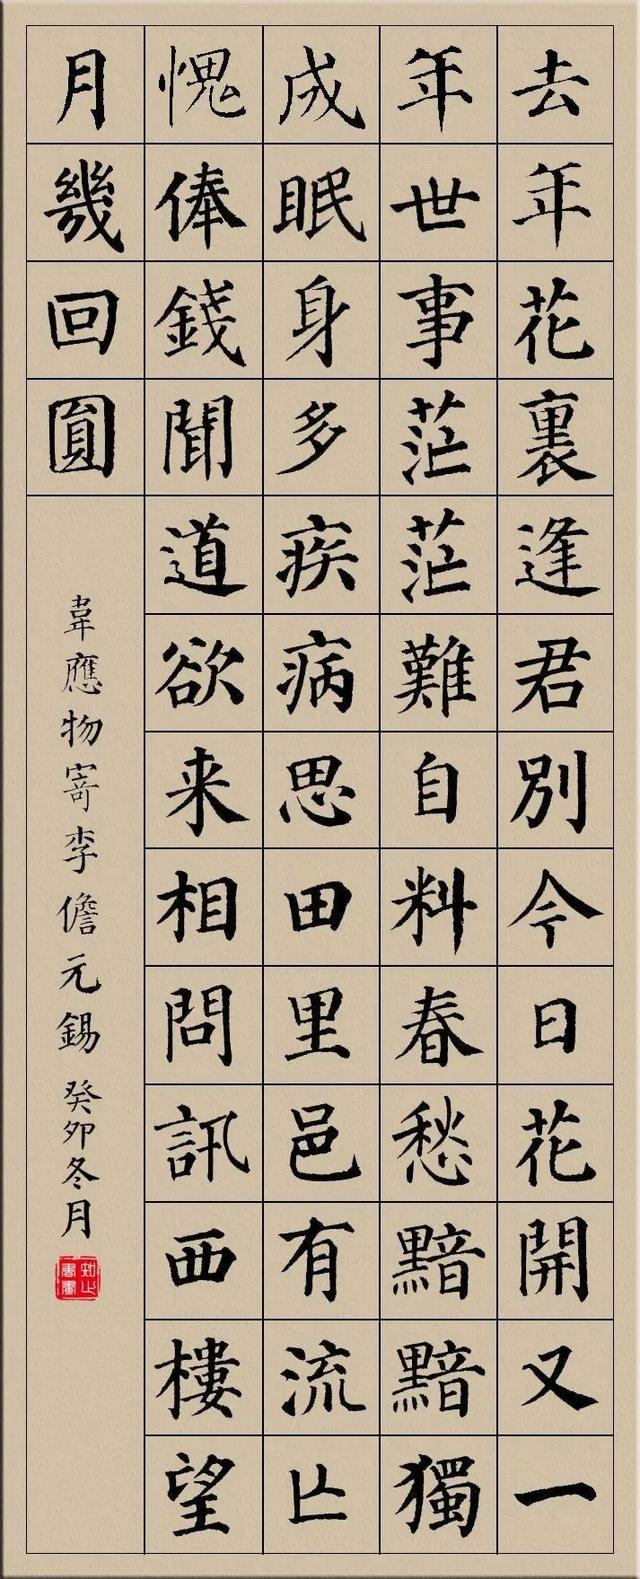 去年花裏逢君別今日花開又一
年世事茫茫難自料春愁黯黯獨
成眠身多疾病思田里邑有流亡
愧俸錢聞道欲来相問訊西樓望
月幾回圓
韋應物寄李儋元錫 癸卯冬月